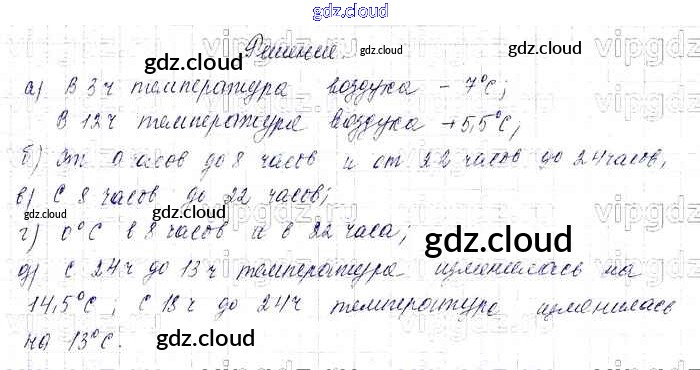 gdz.cloud
Решение.
gdz.cloud
gdz.cloud
gdz.cloud
а) В 3 ч температура воздуха – 7°С;
В 12 ч температура воздуха +5,5°С;
б) От 0 часов до 8 часов и от 22 часов до 24 часов,
в) С 8 часов до 22 часов;
gdz.cloud
gdz.cloud
г) 0°С в 8 часов и в 22 часа;
gdz.cloud
д) С 24 ч до 13 ч температура изменилась на
gdz.cloud
14,5°С; с 18 ч до 24 ч температура изменилась
на 13°С.
gdz.cloud
gdz.cloud